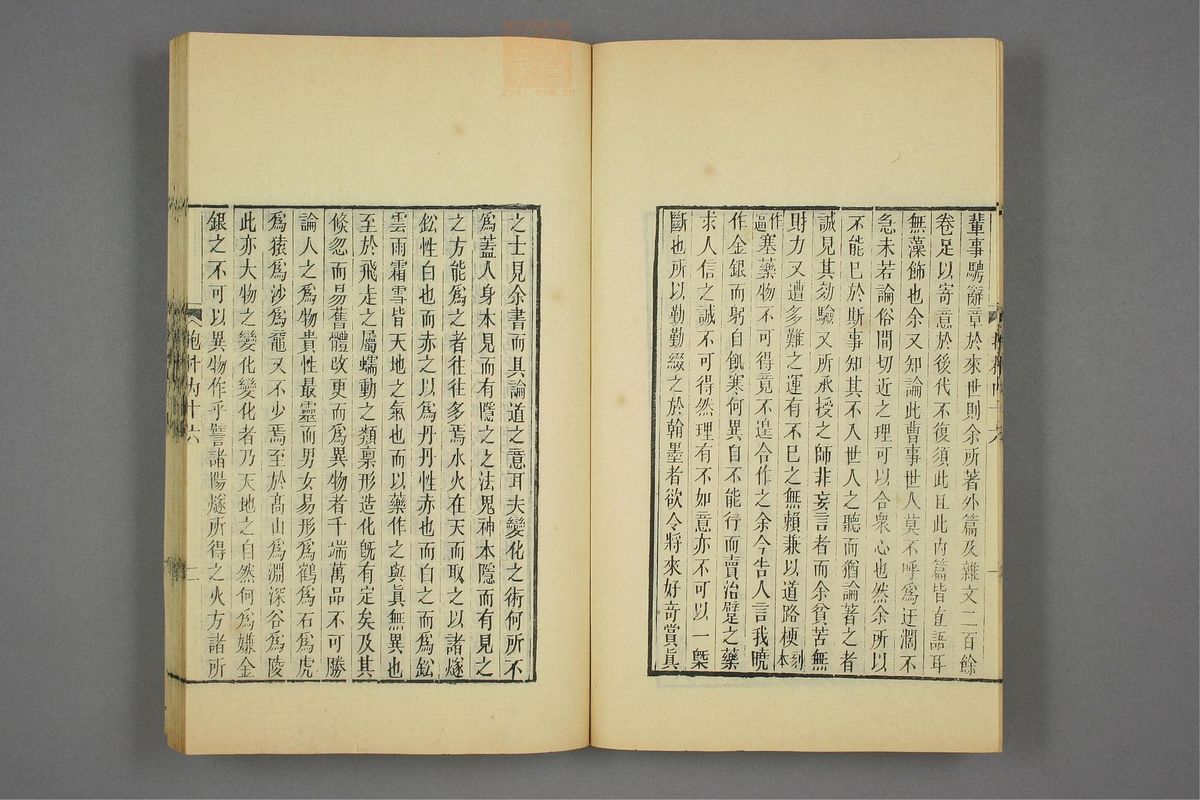 輩事騁辭章於來世則余所著外篇及雜文二百餘
卷足以寄意於後代不復須此且此內篇皆直語耳
無藻飾也余又知論此曹事世人莫不呼爲迂濶不
急未若論俗間切近之理可以合衆心也然余所以
不能已於斯事知其不入世人之聽而猶論著之者
誠見其効驗又所承授之師非妄言者而余貧苦無
財力又遭多難之運有不已之無賴兼以道路梗刻本
作逼塞藥物不可得竟不遑合作之余今告人言我曉
作金銀而躬自飢寒何異自不能行而賣治躄之藥
求人信之誠不可得然理有不如意亦不可以一槩
斷也所以勤勤綴之於翰墨者欲令將來好奇賞眞
之士見余書而具論道之意耳夫變化之術何所不
爲蓋人身本見而有隱之之法鬼神本隱而有見之
之方能爲之者往往多焉水火在天而取之以諸燧
鈆性白也而赤之以爲丹丹性赤也而白之而爲鈆
雲雨霜雪皆天地之氣也而以藥作之與眞無異也
至於飛走之屬蠕動之類稟形造化旣有定矣及其
倏忽而易舊體改更而爲異物者千端萬品不可勝
論人之爲物貴性最靈而男女易形爲鶴爲石爲虎
爲猿爲沙爲黿又不少焉至於髙山爲淵深谷爲陵
此亦大物之變化變化者乃天地之自然何爲嫌金
銀之不可以異物作乎譬諸陽燧所得之火方諸所
抱朴內十六
二